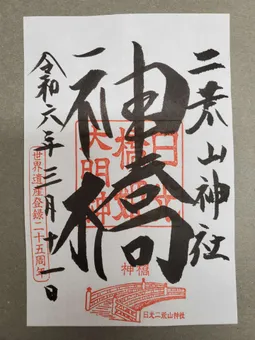 二荒山神社
神橋
令和六年三月十一日
世界遺産登録二十五周年
橋姫
大明神
神橋
日光二荒山神社